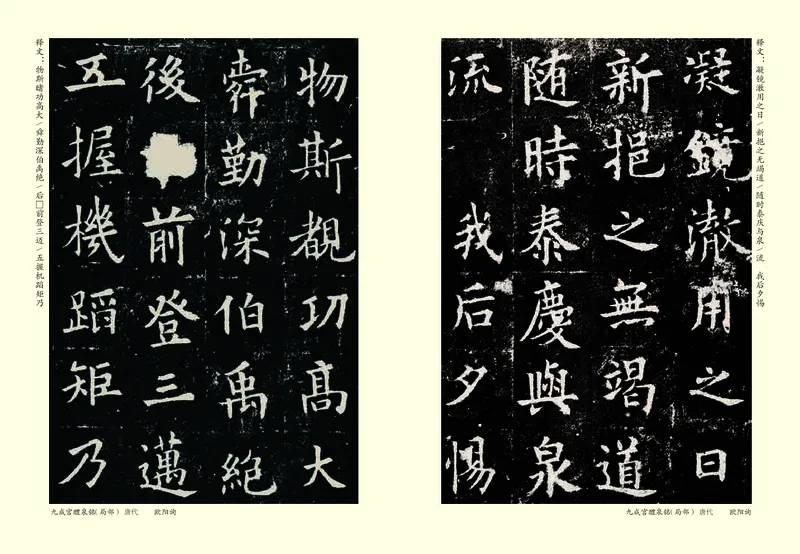 释文：凝镜澈用之日/新挹之无竭道/随时泰庆与泉/流　我后夕惕
凝鏡澈用之日
新挹之無竭道
随時泰慶與泉
流 我后夕惕
九成宫醴泉铭(局部) 唐代 欧阳询
物斯覩功高大
舜勤深伯禹絕
後 前登三邁
五握機蹈矩乃
释文：物斯睹功高大/舜勤深伯禹绝/后□前登三迈/五握机蹈矩乃
九成宫醴泉铭(局部) 唐代 欧阳询